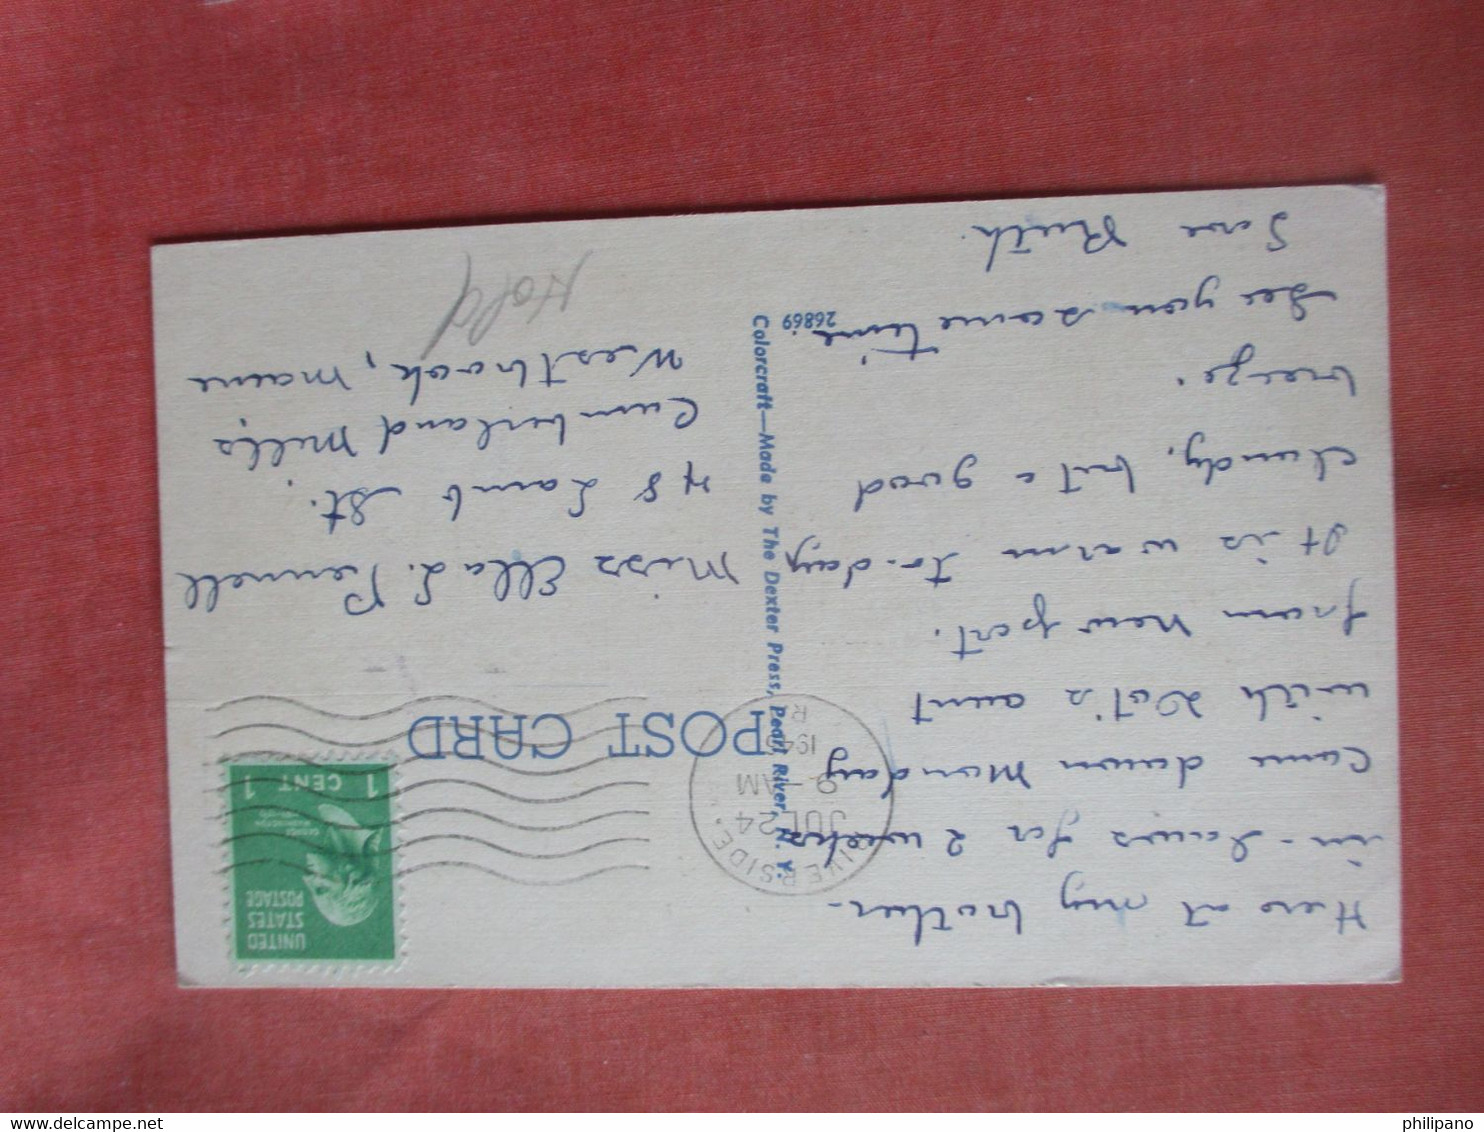 Here at my brother-
in-laws for 2 weeks
Came down Monday
with Dot's aunt
from Newport.
It is warm to-day,
cloudy, but a good
breeze.
See you some time.
Love Ruth.
POST CARD
RIVERSIDE.
JUL 24
9-AM
R
UNITED
STATES
POSTAGE
1 CENT 1
Miss Ella L. Pennell
48 Lamb St.
Cumberland Mills
Westbrook, Maine
Hold
Colorcraft—Made by The Dexter Press, Pearl River, N. Y.
26869
philipano